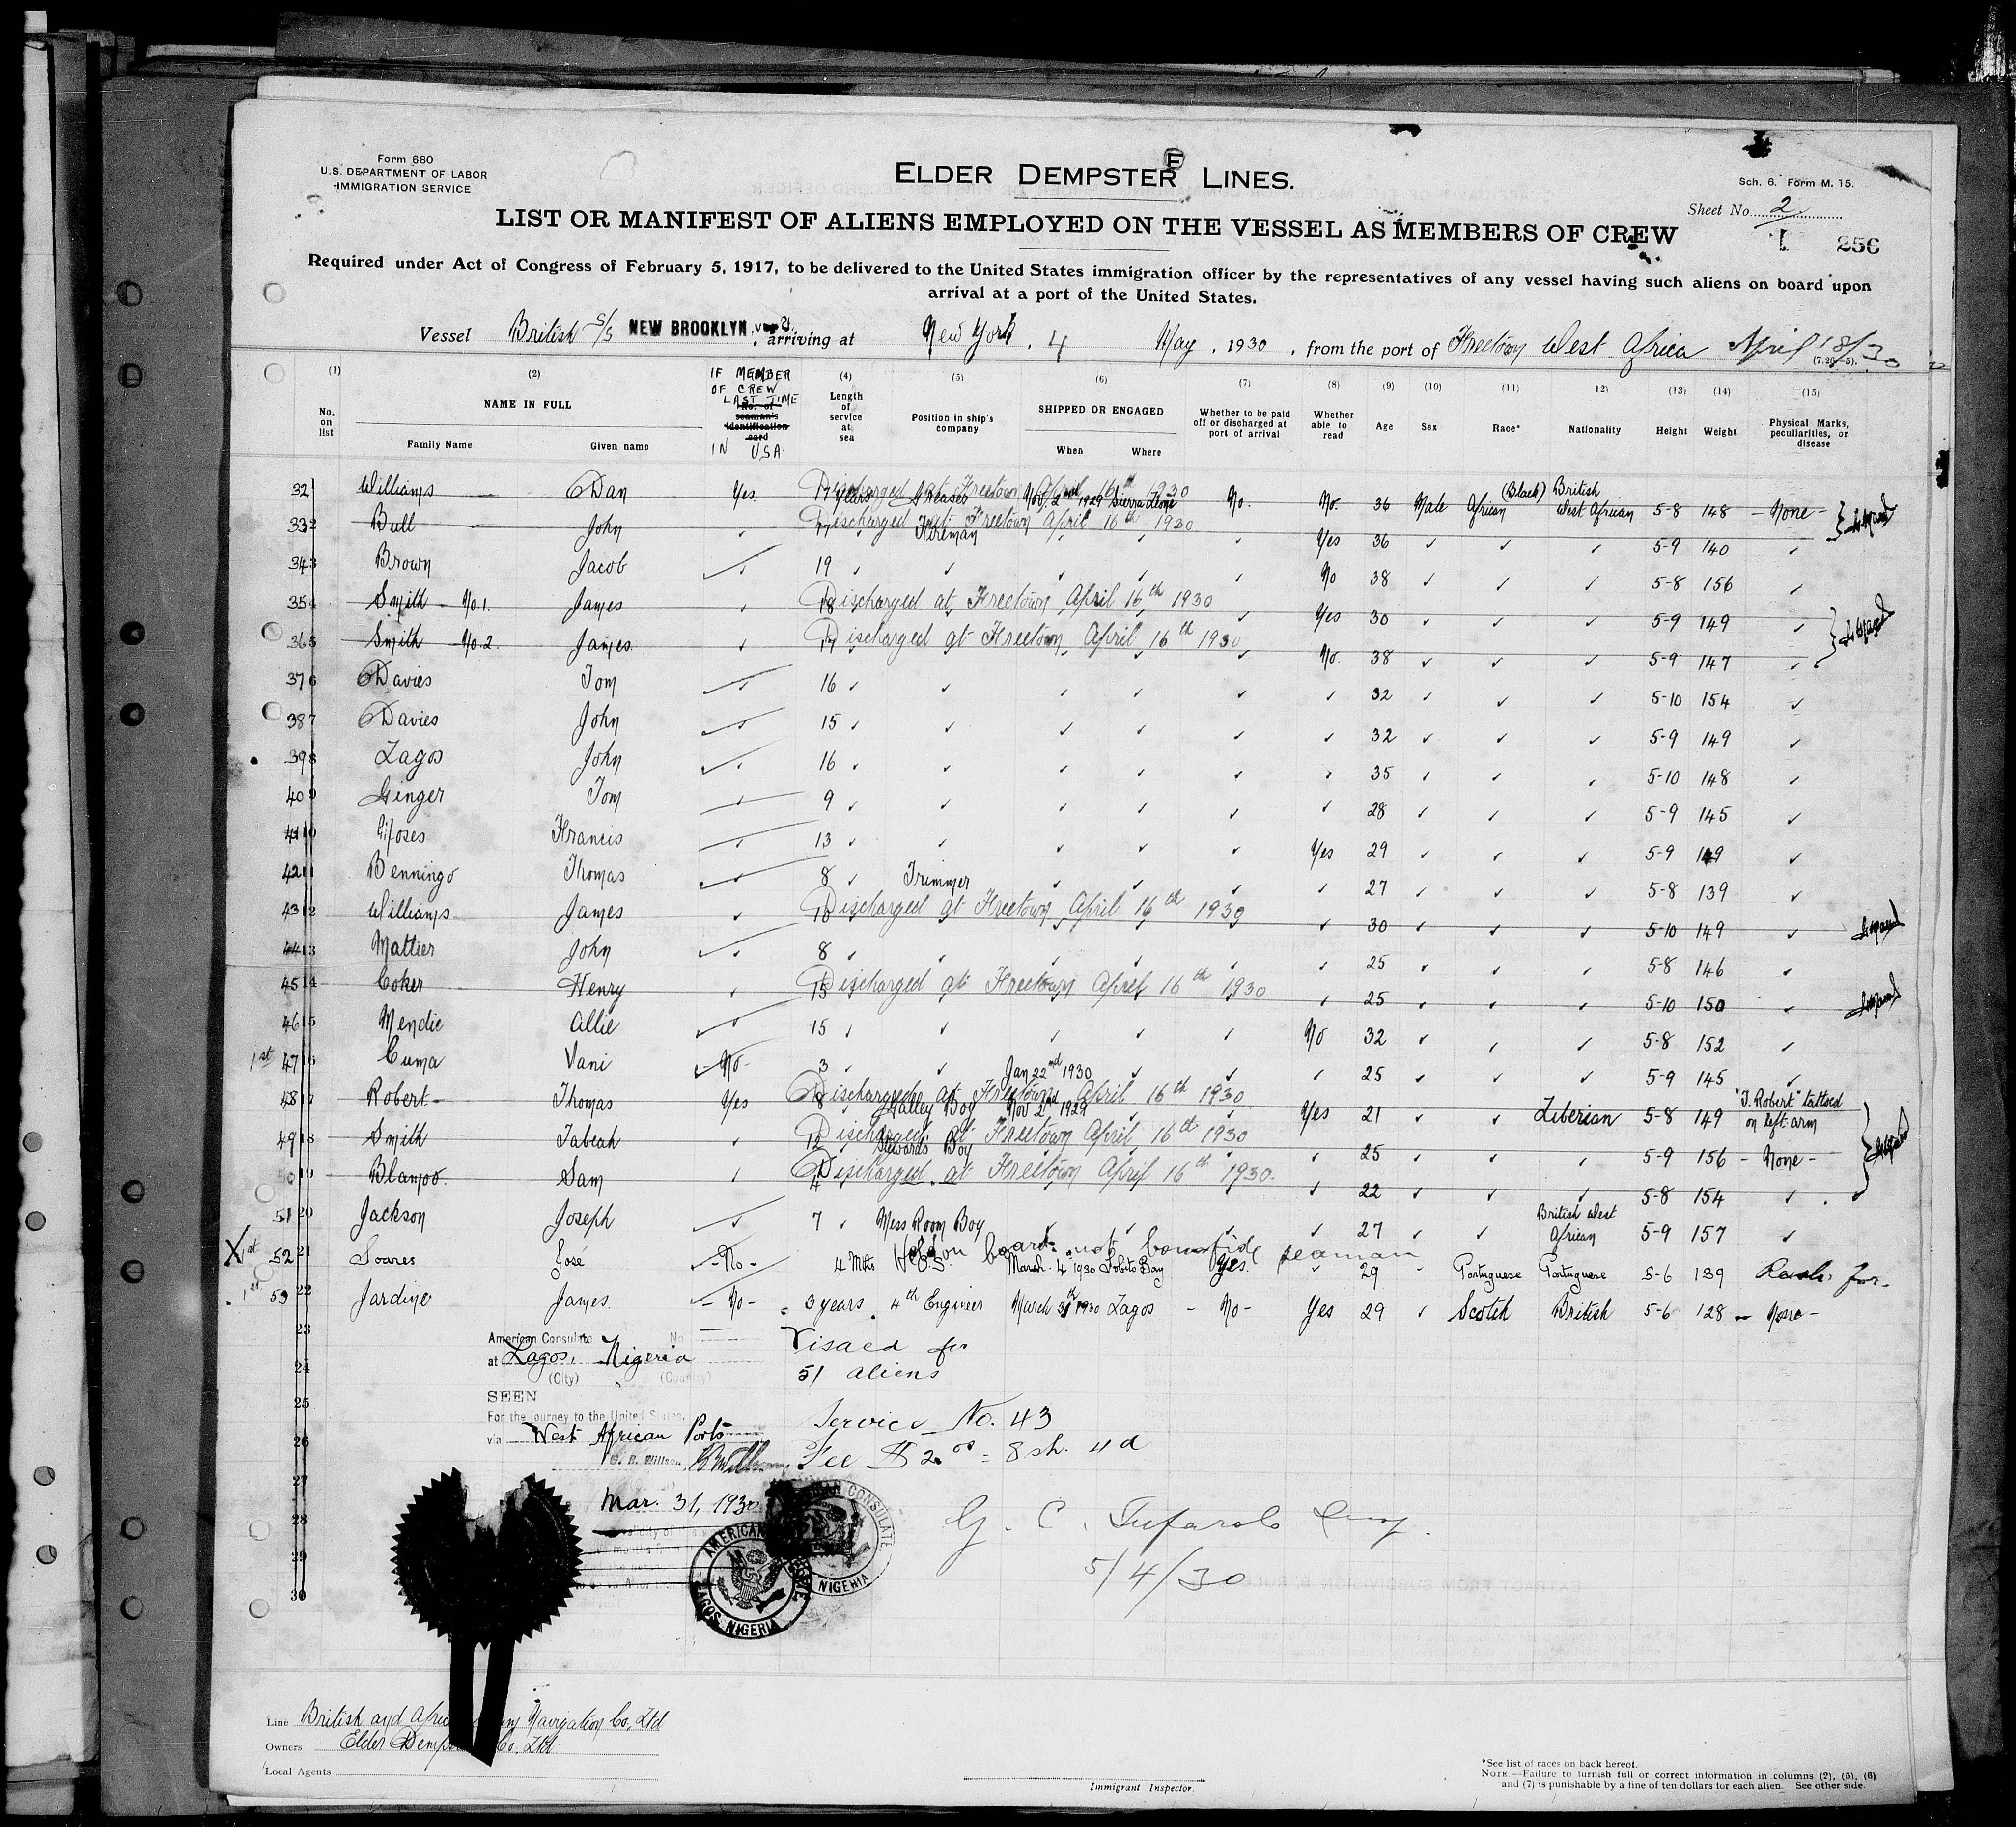 Form 680
U.S. DEPARTMENT OF LABOR
IMMIGRATION SERVICE
ELDER DEMPSTER LINES.
E
Sch. 6. Form M. 15.
Sheet No. 2
256
LIST OR MANIFEST OF ALIENS EMPLOYED ON THE VESSEL AS MEMBERS OF CREW
Required under Act of Congress of February 5, 1917, to be delivered to the United States immigration officer by the representatives of any vessel having such aliens on board upon
arrival at a port of the United States.
Vessel British S/S NEW BROOKLYN, arriving at New York, 4 May, 1930, from the port of Freetown West Africa April 18/30
(7.26—5).
(1) (2) IF MEMBER OF CREW LAST TIME IN USA (4) (5) (6) (7) (8) (9) (10) (11) 12) (13) (14) (15)
No. on list NAME IN FULL No. of seaman's identification card Length of service at sea Position in ship's company SHIPPED OR ENGAGED Whether to be paid off or discharged at port of arrival Whether able to read Age Sex Race* Nationality Height Weight Physical Marks, peculiarities, or disease
Family Name Given name When Where
32 1 Williams Dan Yes 17 years Greaser Nov. 2nd 1929 Sierra Leone No. No. 36 Male African (Black) British West African 5-8 148 - None -
Discharged at Freetown April 16th 1930
33 2 Bull John ✓ 17 Fireman ✓ ✓ ✓ Yes 36 ✓ ✓ ✓ 5-9 140 ✓
Discharged at Freetown April 16th 1930
34 3 Brown Jacob ✓ 19 ✓ ✓ ✓ ✓ ✓ No 38 ✓ ✓ ✓ 5-8 156 ✓
35 4 Smith No.1. James ✓ 18 Discharged at Freetown April 16th 1930 ✓ Yes 30 ✓ ✓ ✓ 5-9 149 ✓
36 5 Smith No.2. James ✓ 17 Discharged at Freetown April 16th 1930 ✓ No. 38 ✓ ✓ ✓ 5-9 147 ✓
37 6 Davies Tom ✓ 16 ✓ ✓ ✓ ✓ ✓ ✓ 32 ✓ ✓ ✓ 5-10 154 ✓
38 7 Davies John ✓ 15 ✓ ✓ ✓ ✓ ✓ ✓ 32 ✓ ✓ ✓ 5-9 149 ✓
39 8 Lagos John ✓ 16 ✓ ✓ ✓ ✓ ✓ ✓ 35 ✓ ✓ ✓ 5-10 148 ✓
40 9 Ginger Tom ✓ 9 ✓ ✓ ✓ ✓ ✓ ✓ 28 ✓ ✓ ✓ 5-9 145 ✓
41 10 Moses Francis ✓ 13 ✓ ✓ ✓ ✓ ✓ Yes 29 ✓ ✓ ✓ 5-9 149 ✓
42 11 Benningo Thomas ✓ 8 ✓ Trimmer ✓ ✓ ✓ ✓ 27 ✓ ✓ ✓ 5-8 139 ✓
43 12 Williams James ✓ Discharged at Freetown April 16th 1930 ✓ 30 ✓ ✓ ✓ 5-10 149 ✓
44 13 Mattier John ✓ 8 ✓ ✓ ✓ ✓ ✓ ✓ 25 ✓ ✓ ✓ 5-8 146 ✓
45 14 Coker Henry ✓ 15 Discharged at Freetown April 16th 1930 ✓ 25 ✓ ✓ ✓ 5-10 150 ✓
46 15 Mendie Allie ✓ 15 ✓ ✓ ✓ ✓ ✓ No 32 ✓ ✓ ✓ 5-8 152 ✓
1st 47 16 Cuma Vani No 3 ✓ ✓ Jan 22nd 1930 ✓ ✓ ✓ 25 ✓ ✓ ✓ 5-9 145 ✓
48 17 Robert Thomas Yes 8 Galley Boy Nov 2nd 1929 ✓ ✓ Yes 21 ✓ ✓ Liberian 5-8 149 "T. Robert" tattoed on left arm
Discharged at Freetown April 16th 1930
49 18 Smith Tabeah ✓ 12 Stewards Boy ✓ ✓ ✓ ✓ 25 ✓ ✓ ✓ 5-9 156 - None -
Discharged at Freetown April 16th 1930
50 19 Blamoo Sam ✓ 4 Discharged at Freetown April 16th 1930. ✓ 22 ✓ ✓ ✓ 5-8 154 ✓
51 20 Jackson Joseph ✓ 7 ✓ Mess Room Boy ✓ ✓ ✓ ✓ 27 ✓ ✓ British West African 5-9 157 ✓
X 1st 52 21 Soares José - No - 4 Mths O.S. March 4th 1930 Lobito Bay Yes. " 29 " Portuguese Portuguese 5-6 139
Held on board not bonafide seaman
1st 53 22 Jardine James. - No - 3 years 4th Engineer March 31th 1930 Lagos - No - Yes 29 ✓ Scotch British 5-6 128 - None -
23
24
25
26
27
28
29
30
American Consulate No.
at Lagos, Nigeria
(City) (Country)
SEEN
For the journey to the United States,
via West African Ports
Mar. 31, 1930
Visaed for
51 aliens
Service No. 43
Fee $2.00 = 8 sh. 4d
AMERICAN CONSULATE
LAGOS, NIGERIA
CONSULATE
NIGERIA
5/4/30
Line British and Navigation Co, Ltd
Owners Elder Co. Ltd.
Local Agents
Immigrant Inspector.
*See list of races on back hereof.
NOTE.—Failure to furnish full or correct information in columns (2), (5), (6)
and (7) is punishable by a fine of ten dollars for each alien. See other side.